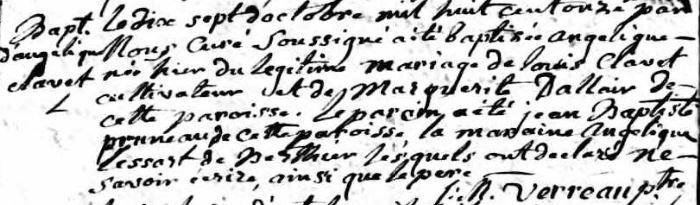 Bapt. Le dix sept d'octobre mil huit cent onze par
d'angelique Nous Curé Soussigné a été baptisée angelique
clavet née hier du legitime mariage de Louis Clavet
cultivateur et de Marguerite Dallair de
cette paroisse. Le parain a été jean Baptiste
pruneau de cette paroisse la maraine Angelique
Lessart de Berthier lesquels ont declaré ne
savoir ecrire, ainsi que le pere
Verreau ptre